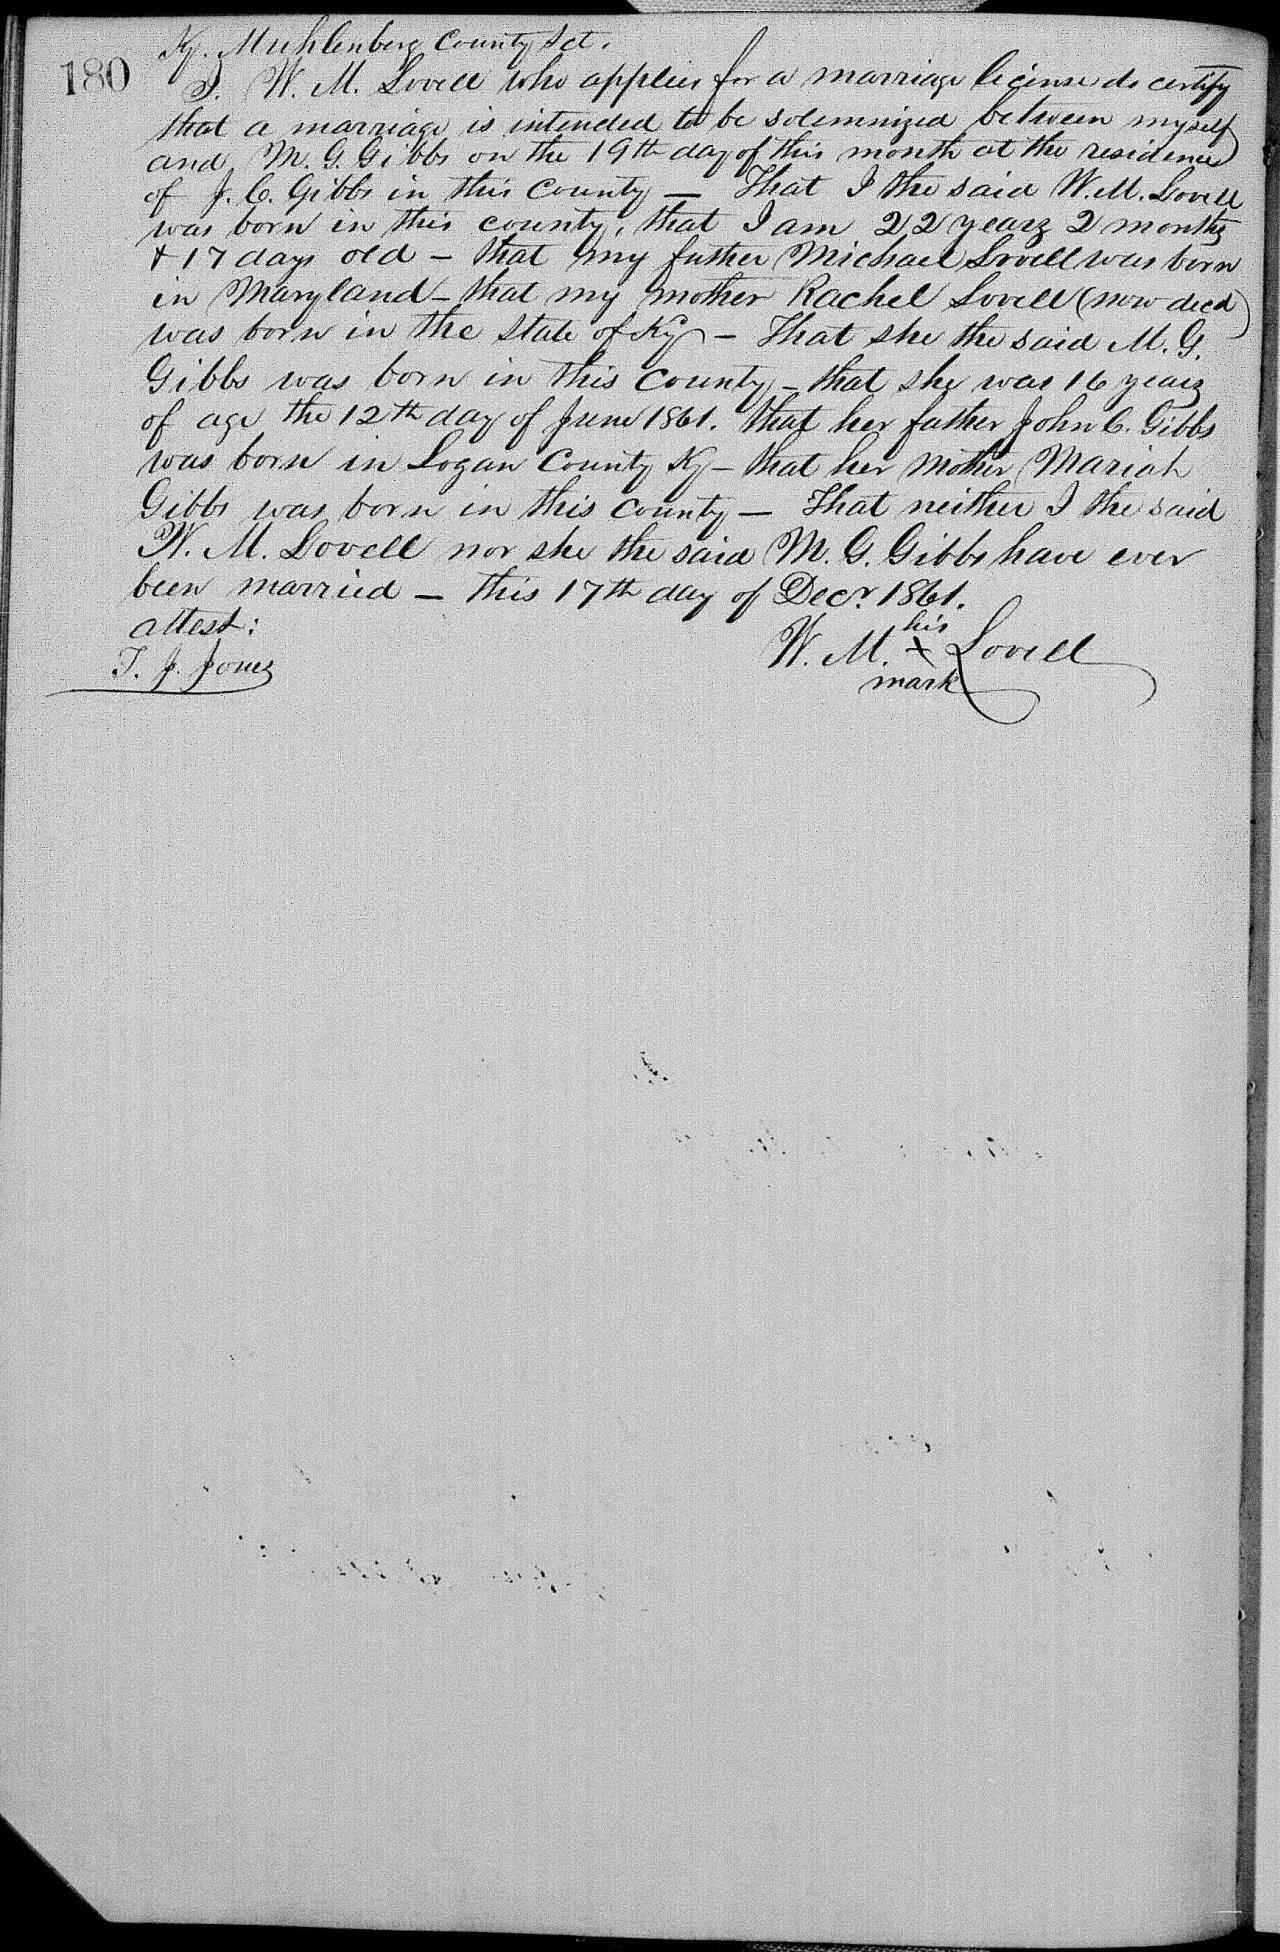 180
Ky. Muhlenberg County Sct.
I. W. M. Lovell who applies for a marriage license do certify
that a marriage is intended to be solemnized between myself
and M. G. Gibbs on the 19th day of this month at the residence
of J. C. Gibbs in this County — That I the said W. M. Lovell
was born in this county, that I am 22 years 2 months
& 17 days old – that my father Michael Lovell was born
in Maryland – that my mother Rachel Lovell (now decd)
was born in the State of Ky – That she the said M. G.
Gibbs was born in this county – that she was 16 years
of age the 12th day of June 1861. that her father John C. Gibbs
was born in Logan County Ky – that her mother Mariah
Gibbs was born in this county — That neither I the said
W. M. Lovell nor she the said M. G. Gibbs have ever
been married — this 17th day of Decr. 1861.
attest:
his
W. M. X Lovell
mark
T. J. Jones